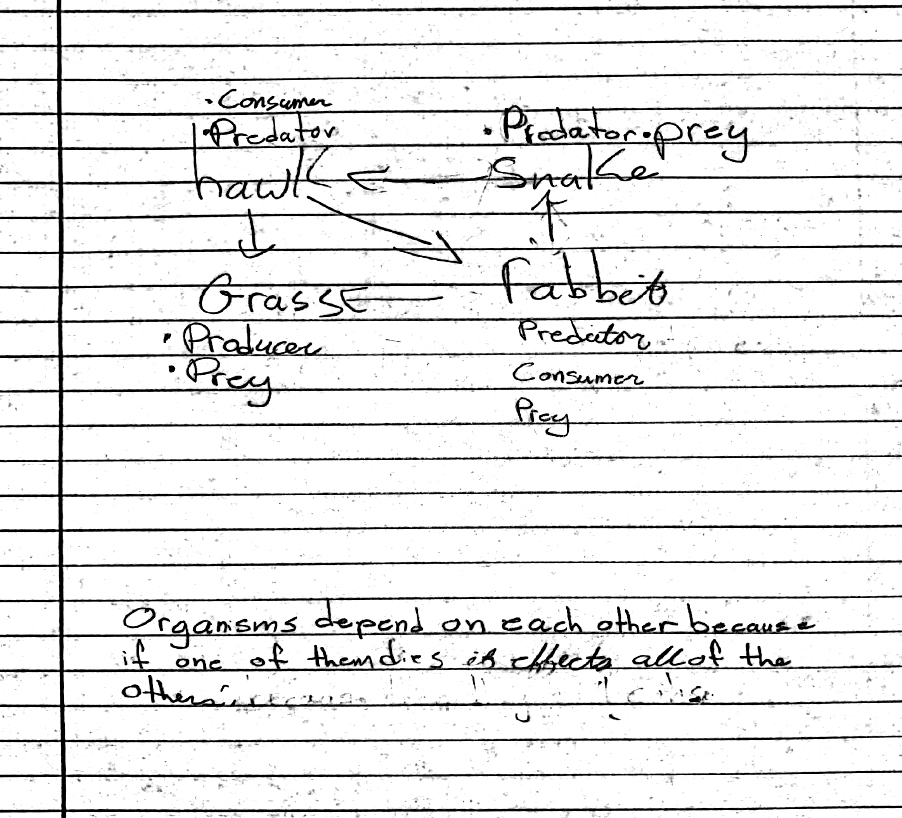 • Consumer
• Predator
• Predator • prey
hawk
Snake
Grasse
rabbet
• Producer
• Prey
Predator
Consumer
Prey
Organisms depend on each other because
if one of them dies it effects all of the
others